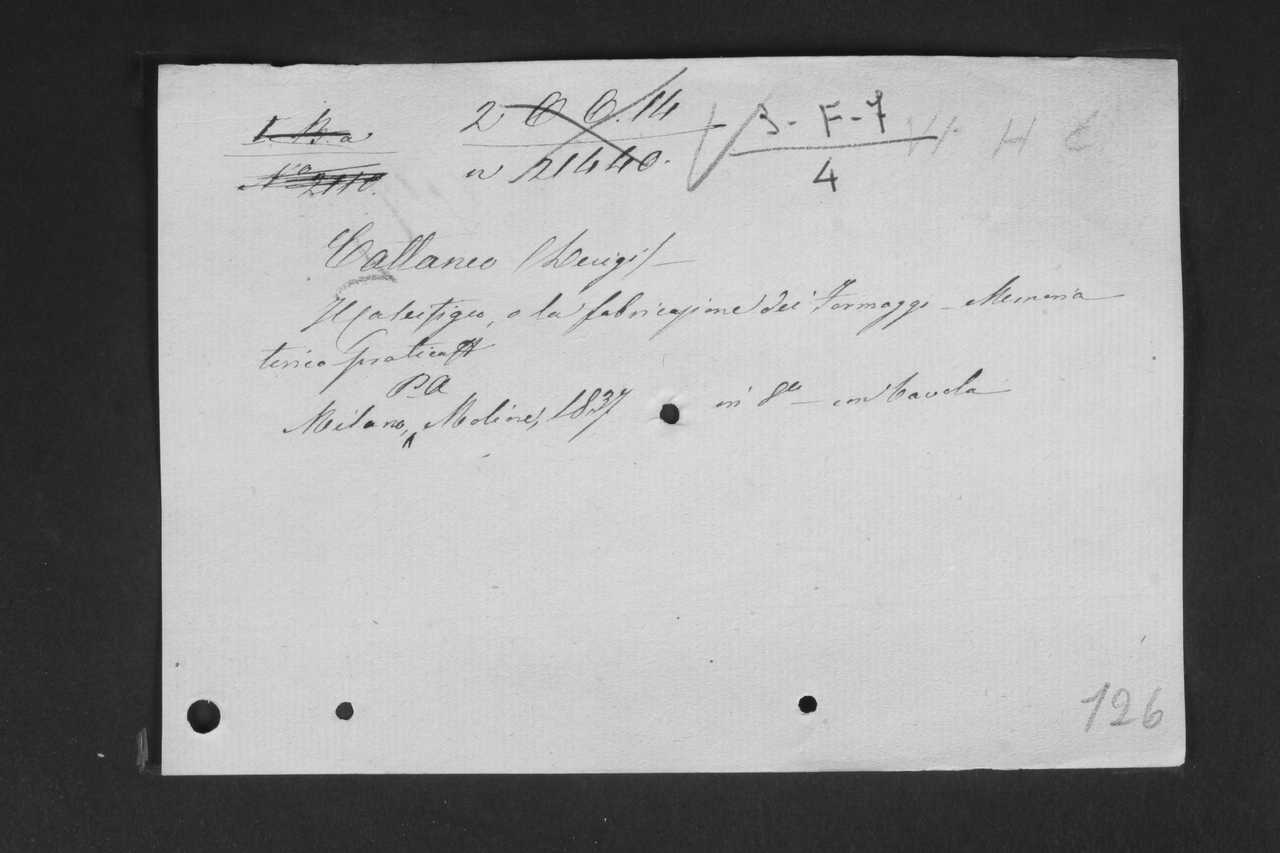 2 O O. 14
n 21440.
3 - F - 7
4
H C
Cattaneo (Luigi) —
Il Caseificio, o la fabbricazione dei Formaggi — Memoria
teorico pratica
P. A
Milano, Molina, 1837 in 8º — con tavola
126